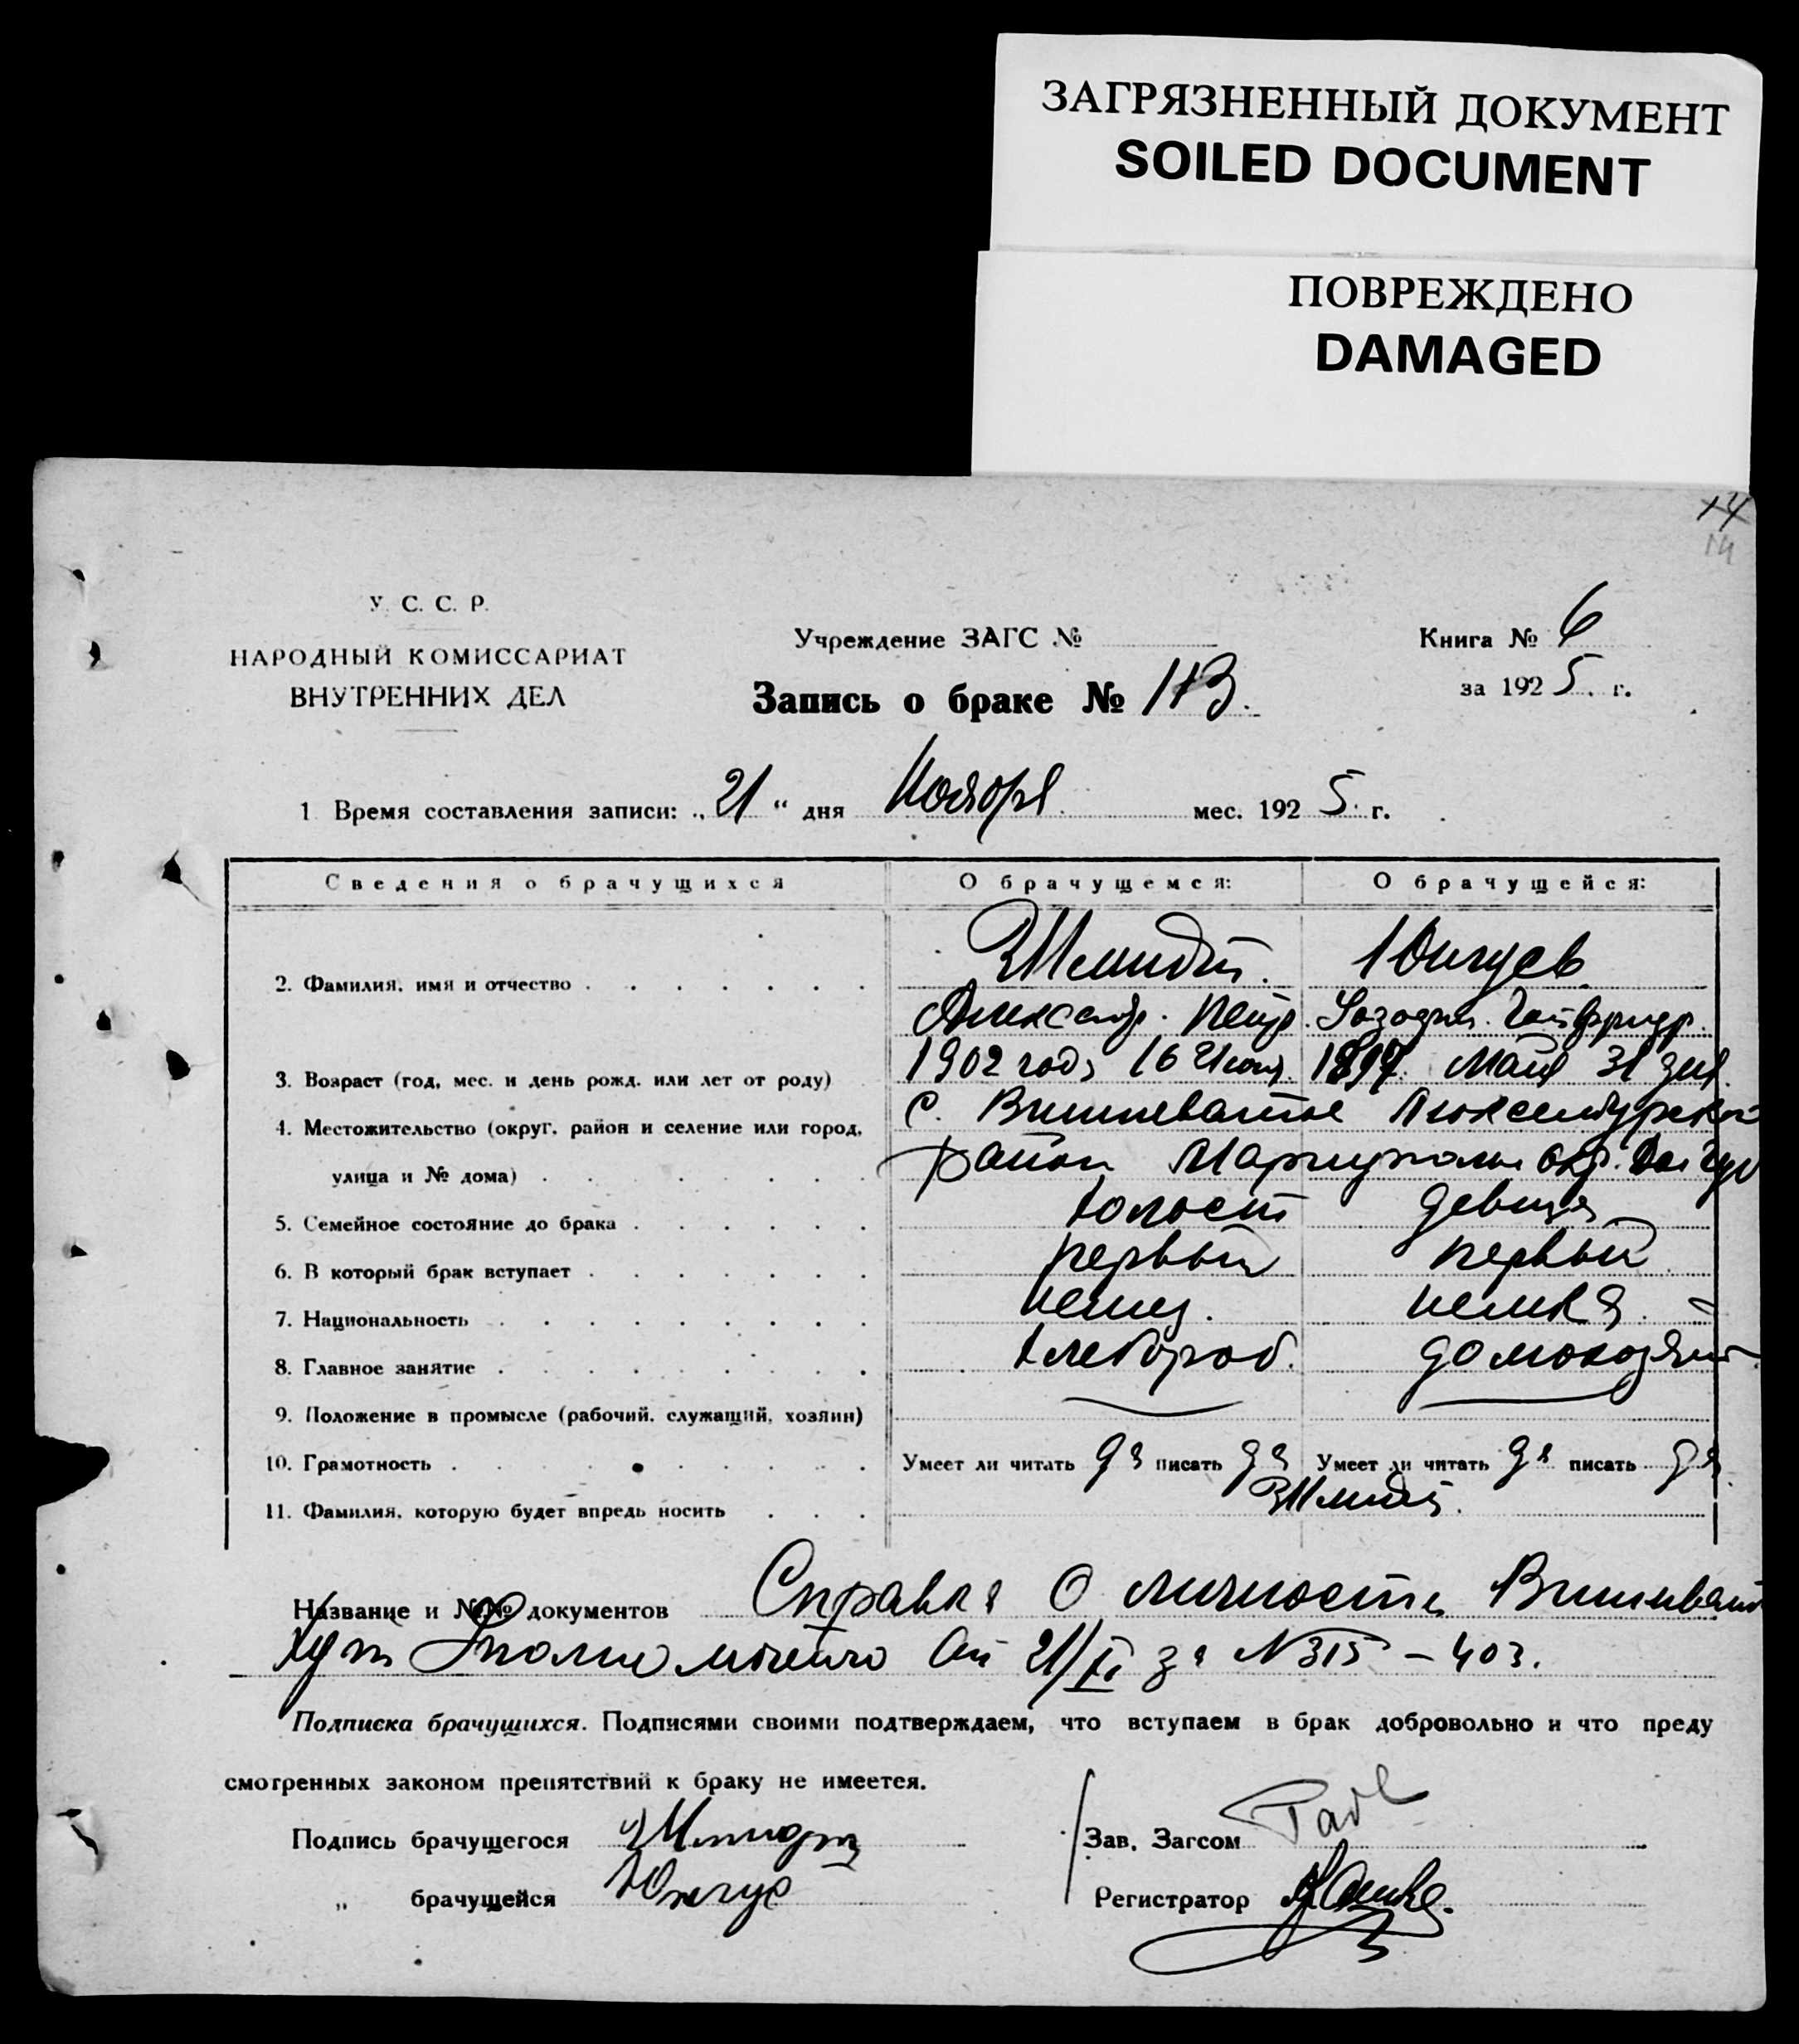 ЗАГРЯЗНЕННЫЙ ДОКУМЕНТ
SOILED DOCUMENT
ПОВРЕЖДЕНО
DAMAGED
14
14
У. С. С. Р.
НАРОДНЫЙ КОМИССАРИАТ
ВНУТРЕННИХ ДЕЛ
Учреждение ЗАГС №
Запись о браке № 113.
Книга № 6
за 1925. г.
1 Время составления записи: „21“ дня Ноября мес. 1925. г.
Сведения о брачущихся О брачущемся: О брачущейся:
2. Фамилия, имя и отчество Шмидт.
Александр. Петр.
3. Возраст (год, мес. и день рожд. или лет от роду) 1902 года 16 1897. Мая 31 дня.
4. Местожительство (округ, район и селение или город, с. Вишневатое Люксембургского
улица и № дома) район Мариуполь. окр.
5. Семейное состояние до брака холост девица
6. В который брак вступает первый первый
7. Национальность немец. немка.
8. Главное занятие хлебороб. домохозяйк
9. Положение в промысле (рабочий, служащий, хозяин)
10. Грамотность Умеет ли читать да писать да Умеет ли читать да писать да
11. Фамилия, которую будет впредь носить Шмидт.
Название и №№ документов Справка о личности Вишневат
от 21/XI за N 315 – 403.
Подписка брачущихся. Подписями своими подтверждаем, что вступаем в брак добровольно и что преду
смотренных законом препятствий к браку не имеется.
Подпись брачущегося Шмидт
„ брачущейся
Зав. Загсом
Регистратор